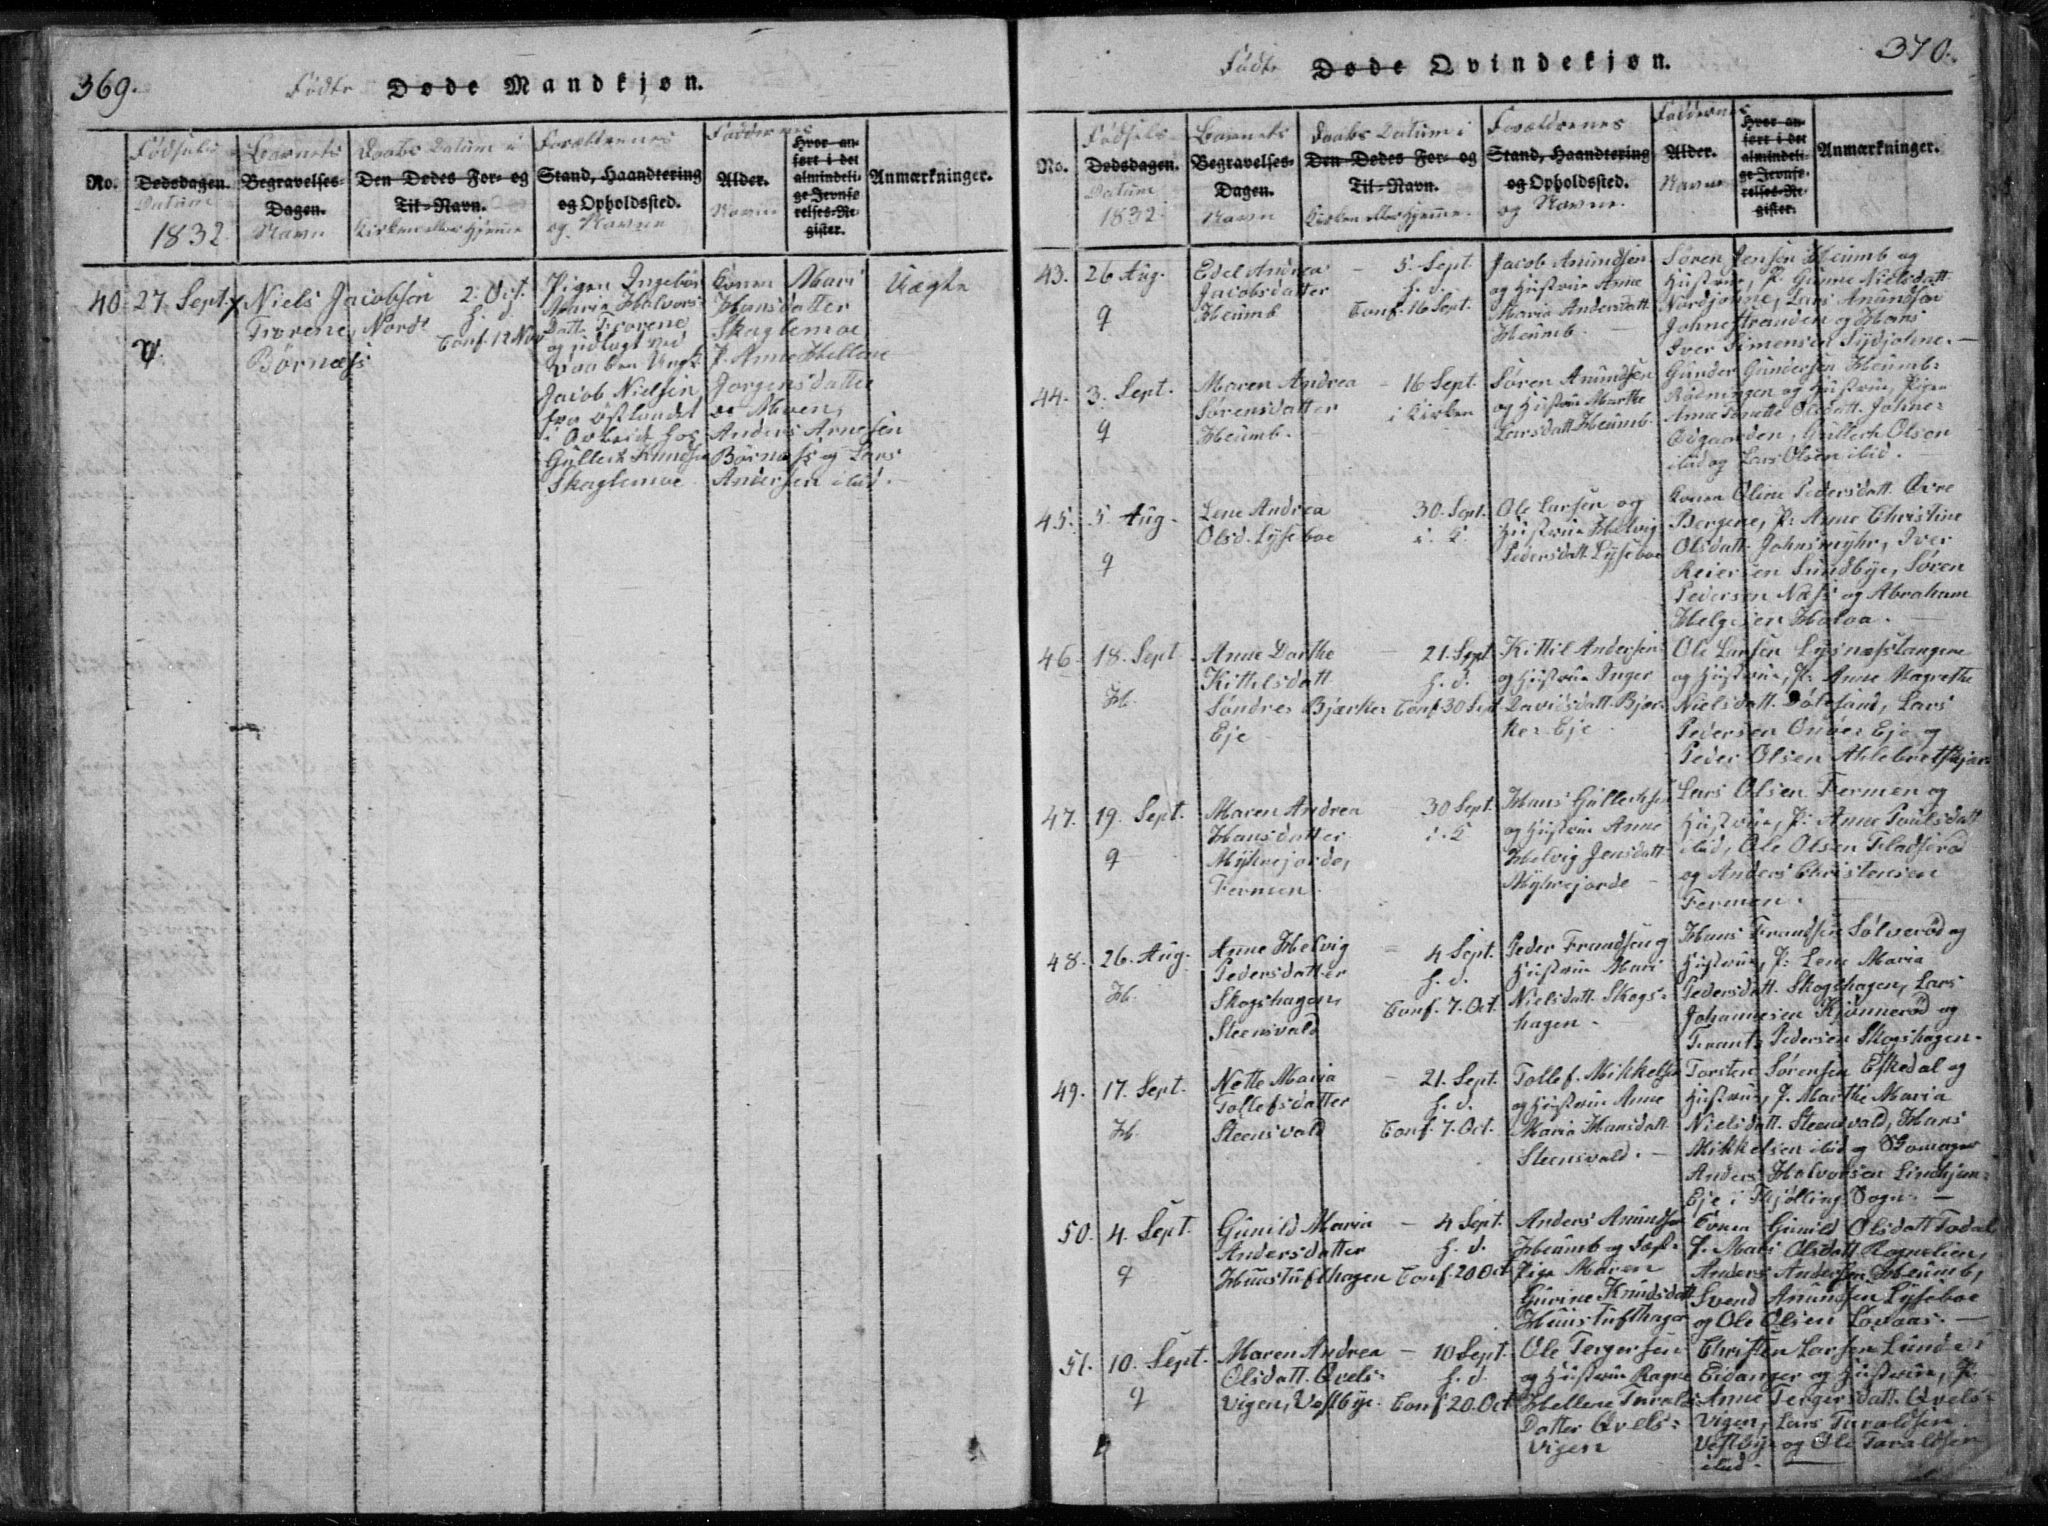 369.
Födte Døde Mandkjøn.
No.
Födsels
Dødsdagen.
Datum
1832.
Barnets
Begravelses-
Dagen.
Navn
Daabs Datum i
Den Dødes For- og
Til-Navn.
Kirken eller Hjemme
Forældrenes
Stand, Haandtering
og Opholdssted.
og Navne
Faddernes
Alder.
Navne
Hvor an-
ført i det
almindeli-
ge Jevnfø-
relses-Re-
gister.
Anmærkninger.
40. 27. Sept.
Niels Jacobsen
Trorene, Nordr
Börnæss
2. Oct.
h. d.
Conf. 12 Nov
Pigen Ingebor
Maria Halvors-
Datt. Trorene
og udlagt ved
Daaben Ungk.
Jacob Nielsen
fra Östlandet
i Arbeide hos
Gullech Knudsen
Skaglemoe
Konen Mari
Hansdatter
Skaglemoe
P. Anne Hellene
Jorgensdatter
og Mæen,
Anders Arnesen
Börnæss og Lars
Andersen ibid.
Uægte
370.
Födte Døde Qvindekjøn.
No.
Födsels
Dødsdagen.
Datum
1832.
Barnets
Begravelses-
Dagen.
Navn
Daabs Datum i
Den Dødes For- og
Til-Navn.
Kirken eller Hjemme.
Forældrenes
Stand, Haandtering
og Opholdssted.
og Navne.
Faddernes
Alder.
Navne
Hvor an-
ført i det
almindeli-
ge Jevnfø-
relses-Re-
gister.
Anmærkninger.
43. 26 Aug.
Edel Andrea
Jacobsdatter
Heumb
5. Sept.
h. d.
Conf. 16 Sept.
Jacob Anundsen
og Hustrue Anne
Maria Andersdatt.
Heumb.
Sören Jensen Heumb og
Hustrue, P. Gunne Nielsdatt.
Nordjohne, Lars Anundsen
Johnestranden og Hans
Iver Simensen Sydjohne.
44. 3. Sept.
Maren Andrea
Sörensdatter
Heumb.
16 Sept.
i Kirken
Sören Anundsen
og Hustrue Marthe
Larsdatt Heumb.
Gunder Gundersen Heumb-
Rödningen og Hustrue, Pigen
Anne Tonette Olsdatt. Johne-
Ödgaarden, Gullech Olsen
ibid og Lars Olsen ibid.
45. 5 Aug.
Lene Andrea
Olsd. Lyseboe
30. Sept.
i. K.
Ole Larsen og
Hustrue Helvig
Pedersdatt. Lyseboe
Konen Oline Pedersdatt. Övre
Bergene, P. Anne Christine
Olsdatt. Johnsmyhr, Iver
Reiersen Sundbye, Sören
Pedersen Næss og Abraham
Helgesen Holaa.
46. 18. Sept.
Anne Dorthe
Kittilsdatt.
Söndre Bjærke-
Eje
21. Sept
h. d.
Conf. 30 Sept
Kittil Andersen
og Hustrue Inger
Davidsdatt. Bjær-
ke- Eje.
Ole Larsen Lysnæsstangene
og Hustrue, P. Anne Magrethe
Nielsdatt. Dölesund, Lars
Pedersen Önne- Eje og
Peder Olsen Ahlebretkjær
47. 19. Sept.
Maren Andrea
Hansdatter
Myhrejorde,
Fermen.
30 Sept.
i. K
Hans Gullechsen
og Hustrue Anne
Helvig Jensdatt.
Myhrejorde
Lars Olsen Fermen og
Hustrue, P. Anne Poulsdatt
ibid, Ole Olsen Fladseröd
og Anders Christensen
Fermen.
48. 26. Aug.
Anne Helvig
Pedersdatter
Skogshagen,
Steensvald
4 Sept.
h. d.
Conf. 7. Oct.
Peder Frandsen og
Hustrue Mari
Nielsdatt. Skogs-
hagen.
Hans Frandsen Sölveröd og
Hustrue, P. Lene Maria
Pedersdatt. Skogshagen, Lars
Johannesen Kjönneröd og
Frants Pedersen Skogshagen.
49. 17. Sept.
Nette Maria
Tollefsdatter
Steensvald
21. Sept.
h. d.
Conf. 7. Oct.
Tollef Mikkelsen
og Hustrue Anne
Maria Hansdatt.
Steensvald.
Torsten Sörensen Eskedal og
Hustrue, P. Marthe Maria
Nielsdatt. Steensvald, Hans
Mikkelsen ibid og Skomager
Anders Halvorsen Lindhjem-
Eje i Thjölling Sogn.
50. 4. Sept.
Gunild Maria
Andersdatter
Huustufthagen
4 Sept.
h. d.
Conf. 20. Oct
Anders Anundsen
Heumb og Fæst-
Pige Maren
Gurine Knudsdatt
Huustufthagen
Konen Gunild Olsdatt Todal
P. Mari Olsdatt. Rognelien,
Anders Andersen Heumb,
Svend Anundsen Lyseboe
og Ole Olsen Lövaas.
51. 10. Sept.
Maren Andrea
Olsdatt. Qvels-
vigen, Vestbye.
10 Sept.
h. d.
Conf. 20. Oct
Ole Tergersen
og Hustrue Ragne
Hellene Tarals-
Datter Qvels-
vigen
Christen Larsen Lunde-
Eidanger og Hustrue, P.
Anne Tergersdatt. Qvels-
vigen, Lars Taraldsen
Vestbye og Ole Taraldsen
ibid.